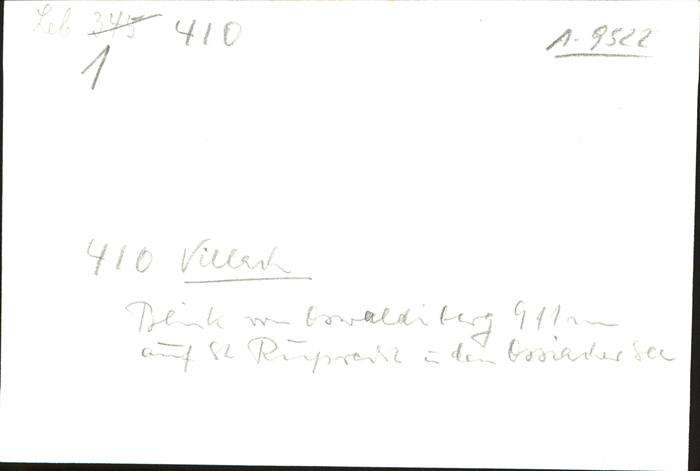 Leb 345 410
A. 9522
1
410 Villach
Blick vom Oswaldiberg 911m
auf St Ruprecht u den Ossiacher See